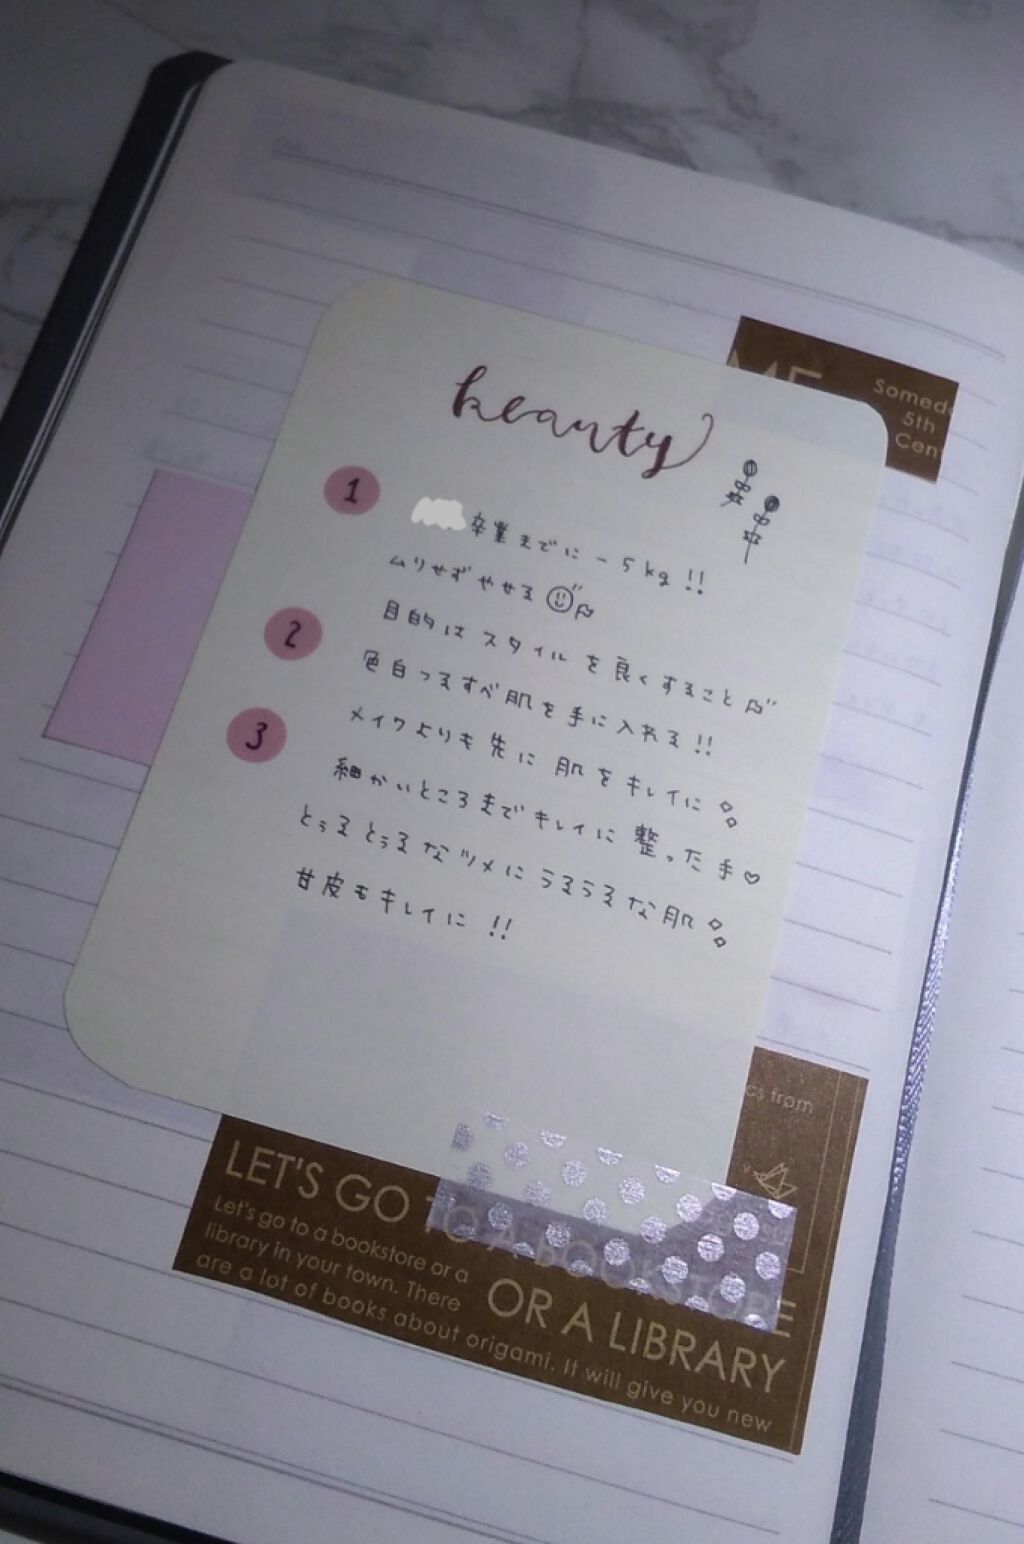 ME
Somed
5th
Cen
beauty
1 卒業までに -5kg!!
ムリせずやせる
2 目的はスタイルを良くすること
色白つるすべ肌を手に入れる!!
3 メイクよりも先に肌をキレイに
細かいところまでキレイに整った手♡
とぅるとぅるなツメにうるうるな肌
甘皮もキレイに!!
cs from
LET'S GO TO A BOOKSTORE
OR A LIBRARY
Let's go to a bookstore or a
library in your town. There
are a lot of books about origami. It will give you new